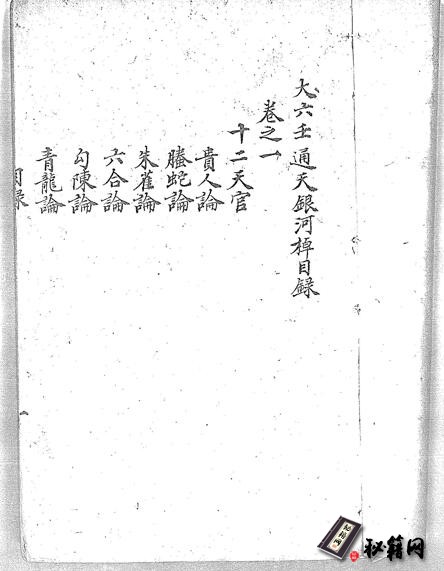 大六壬通天銀河棹目録
卷之一
十二天官
貴人論
螣蛇論
朱雀論
六合論
勾陳論
青龍論
目録
秘籍网